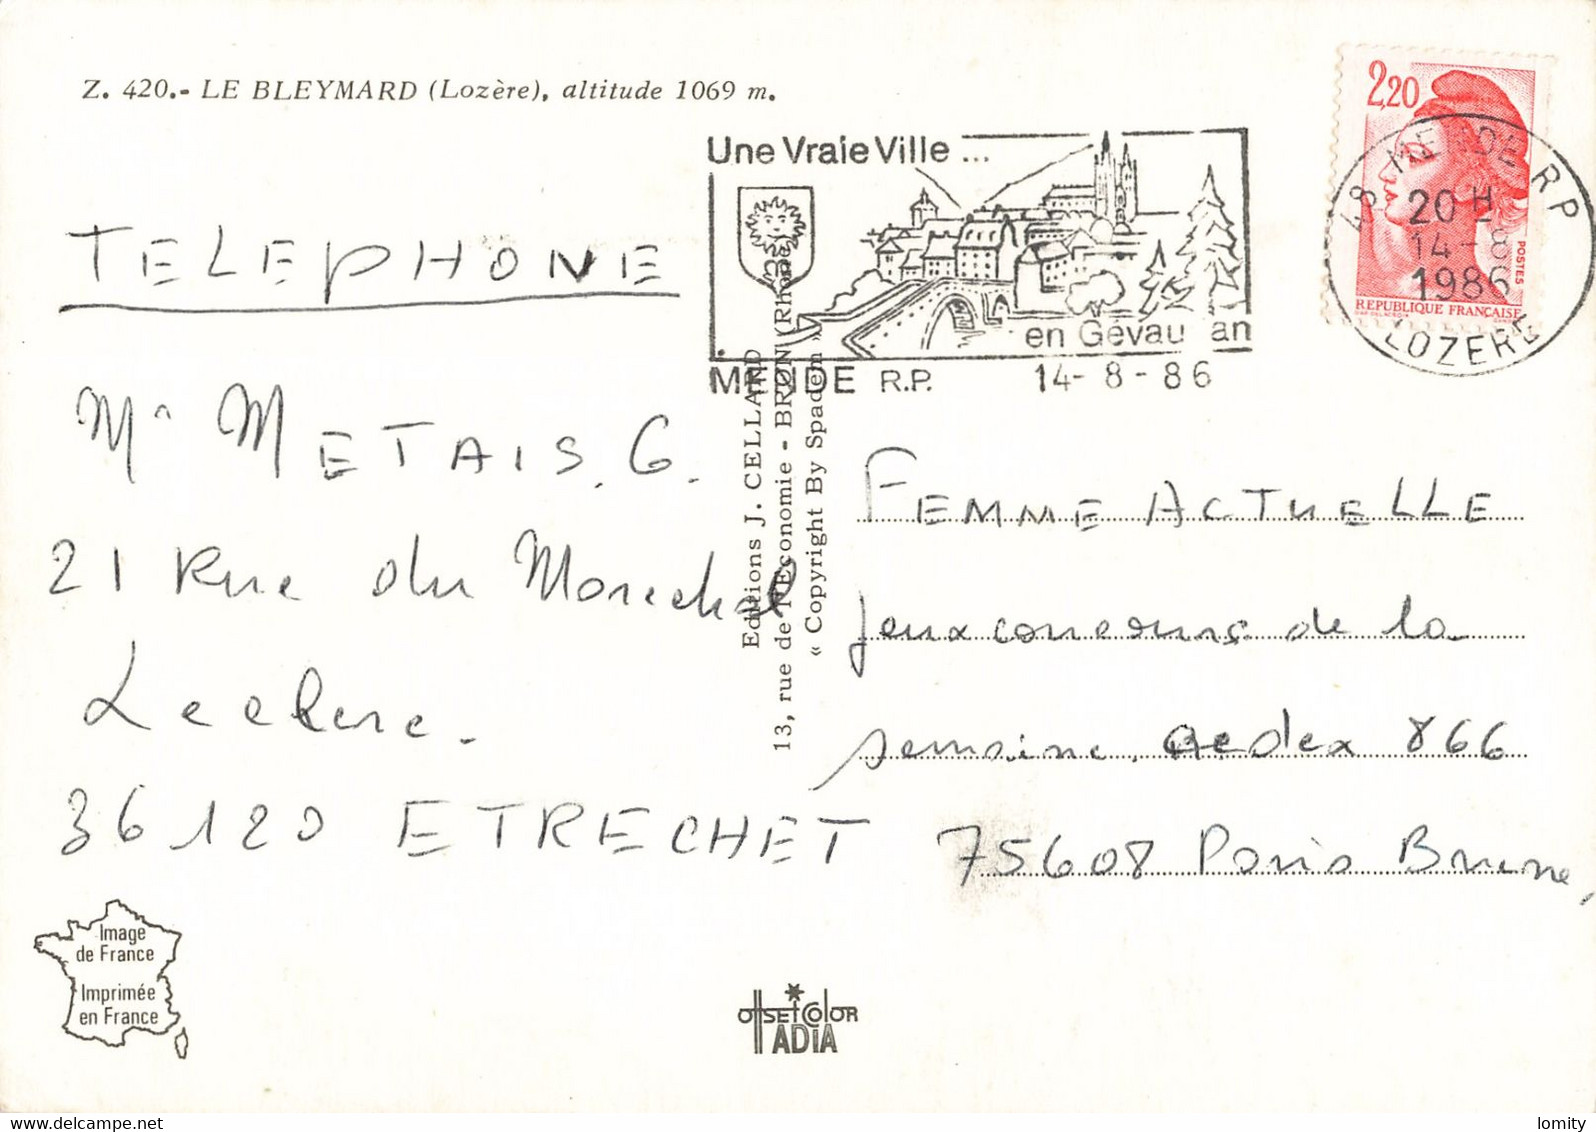 Z. 420.- LE BLEYMARD (Lozère), altitude 1069 m.
2,20
POSTES
REPUBLIQUE FRANÇAISE
48 MENDE RP
20 H
14-8
1986
LOZERE
Une Vraie Ville ...
en Gévau an
MENDE R.P. 14-8-86
TELEPHONE
Mr METAIS. G.
21 Rue du Marechal
Leclerc.
36120 ETRECHET
Editions J. CELLARD
13, rue de l'Economie - BRON (Rhône)
« Copyright By Spadem »
FEMME ACTUELLE
Jeux concours de la
semaine. cedex 866
75608 Paris Brune,
Image
de France
Imprimée
en France
OffsetColor
ADIA
lomity